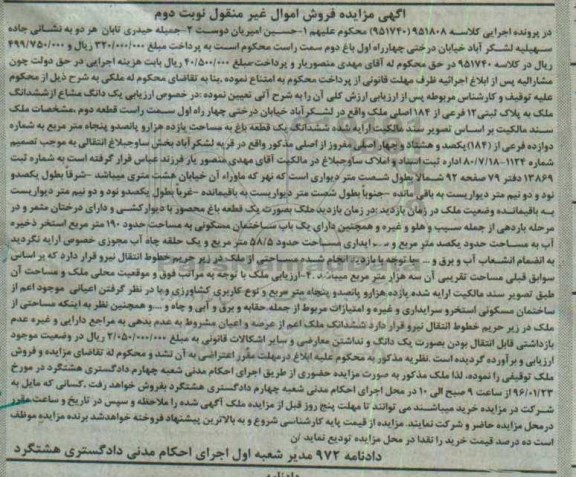 آگهی مزایده فروش اموال غیر منقول نوبت دوم
در پرونده اجرایی کلاسه ۹۵۱۸۰۸ (۹۵۱۷۴۰) محکوم علیهم ۱-حسین امیریان دوست ۲-جمیله حیدری تابان هر دو به نشانی جاده
سهیلیه لشکر آباد خیابان درختی چهارراه اول باغ دوم سمت راست محکوم است به پرداخت مبلغ ۳۲۰/۰۰۰/۰۰۰ ریال و ۴۹۹/۷۵۰/۰۰۰
ریال در کلاسه ۹۵۱۷۴۰ در حق محکوم له آقای مهدی منصوریار و پرداخت مبلغ ۴۰/۵۰۰/۰۰۰ ریال بابت هزینه اجرایی در حق دولت چون
مشارالیه پس از ابلاغ اجرائیه ظرف مهلت قانونی از پرداخت محکوم به امتناع نموده .بنا به تقاضای محکوم له ملکی به شرح ذیل از محکوم
علیه توقیف و کارشناس مربوطه پس از ارزیابی ارزش کلی آن را به شرح آتی تعیین نموده :در خصوص ارزیابی یک دانگ مشاع ازششدانگ
ملک به پلاک ثبتی ۱۲ فرعی از ۱۸۴ اصلی ملک واقع در لشکرآباد خیابان درختی چهار راه اول سمت راست قطعه دوم .مشخصات ملک
سند مالکیت بر اساس تصویر سند مالکیت ارایه شده ششدانگ یک قطعه باغ به مساحت یازده هزارو پانصدو پنجاه متر مربع به شماره
دوازده فرعی از (۱۸۴) یکصد و هشتاد و چهار اصلی مفروز از اصلی مذکور واقع در قریه لشکرآباد بخش ساوجبلاغ انتقالی به موجب تصمیم
شماره ۱۱۳۴-۸۰/۷/۱۸ اداره ثبت اسناد و املاک ساوجبلاغ در مالکیت آقای مهدی منصور یار فرزند عباس قرار گرفته است به شماره ثبت
۱۳۸۶۹ دفتر ۷۹ صفحه ۹۲ شمالا بطول شصت متر دیواری است که نهر که ماوراء آن خیابان هشت متری میباشد -شرقا بطول یکصدو
نود و دو نیم متر دیواریست به باقی مانده -جنوبا بطول شصت متر دیواریست به باقیمانده -غربا بطول یکصدو نود و دو نیم متر دیواریست
به باقیمانده وضعیت ملک در زمان بازدید :در زمان بازدید ملک بصورت یک قطعه باغ محصور با دیوارکشی و دارای درختان مثمر و در
مرحله باردهی از جمله سیب و هلو و غیره و همچنین دارای یک باب ساختمان مسکونی به مساحت حدود ۱۹۰ متر مربع استخر ذخیره
آب به مساحت حدود یکصد متر مربع و سرایداری بمساحت حدود ۵۸/۵ متر مربع و یک حلقه چاه آب مجوزی خصوص ارایه نگردید
به انضمام انشعاب آب و برق و ... با توجه با بازدید انجام شده مساحتی از ملک در زیر حریم خطوط انتقال نیرو قرار دارد که بر اساس
سوابق قبلی مساحت تقریبی آن سه هزار متر مربع میباشد .۴-ارزیابی ملک با توجه به مراتب فوق و موقعیت محلی ملک و مساحت آن
طبق تصویر سند مالکیت ارایه شده یازده هزارو پانصدو پنجاه متر مربع و نوع کاربری کشاورزی وبا در نظر گرفتن اعیانی موجود اعم از
ساختمان مسکونی استخرو سرایداری و غیره و امتیازات مربوط از جمله حقابه و برق و آبی و چاه و ... و همچنین نظر به اینکه مساحتی از
ملک در زیر حریم خطوط انتقال نیرو قرار دارد ششدانگ ملک اعم از عرصه و اعیان مشروط به عدم بدهی به مراجع دارایی و غیره عدم
بازداشتی قابل انتقال بودن بصورت یک دانگ و نداشتن معارضی و سایر اشکالات قانونی به مبلغ ۲/۰۵۰/۰۰۰/۰۰۰ ریال در وضعیت موجود
ارزیابی و برآورده گردیده است .نظریه مذکور به محکوم علیه ابلاغ درمهلت مقرر اعتراضی به آن نشد و محکوم له تقاضای مزایده و فروش
ملک توقیفی را نموده، لذا ملک مذکور به صورت مزایده حضوری از طریق اجرای احکام مدنی شعبه چهارم دادگستری هشتگرد در مورخ
۹۶/۰۱/۲۳ از ساعت ۹ صبح الی ۱۰ در محل اجرای احکام مدنی شعبه چهارم دادگستری هشتگرد بفروش خواهد رفت .کسانی که مایل به
شرکت در مزایده خرید میباشند می توانند تا مهلت پنج روز قبل از مزایده ملک آگهی شده را ملاحظه و سپس در تاریخ و ساعت مقرر
درمحل مزایده حاضر و شرکت نمایند. مزایده از قیمت پایه کارشناسی شروع و به بالاترین پیشنهاد فروخته خواهدشد برنده مزایده موظف
است ده درصد قیمت خرید را نقدا در محل مزایده تودیع نماید
دادنامه ۹۷۲ مدیر شعبه اول اجرای احکام مدنی دادگستری هشتگرد